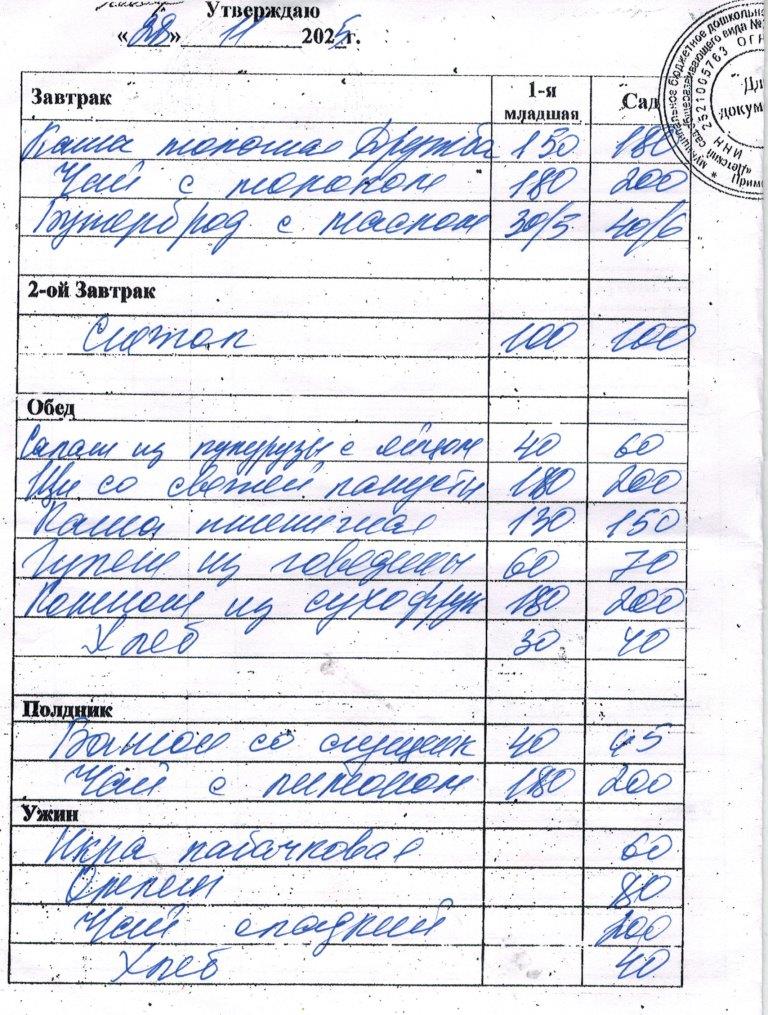 Утверждаю
«28» 11 2025 г.
Завтрак 1-я младшая Сад
Каша молочная Дружба 150 180
Чай с молоком 180 200
Бутерброд с маслом 30/5 40/6
2-ой Завтрак
Снежок 100 100
Обед
Салат из кукурузы с яйцом 40 60
Щи со свежей капусты 180 200
Каша пшеничная 130 150
Гуляш из говядины 60 70
Компот из сухофрук 180 200
Хлеб 30 40
Полдник
Батон со сгущенк 40 45
Чай с лимоном 180 200
Ужин
Икра кабачковая 60
Омлет 80
Чай сладкий 200
Хлеб 40
Муниципальное бюджетное дошкольно
"Детский сад общеразвивающего вида №
ИНН 2521005763 ОГН
Прим
"Дл
докум